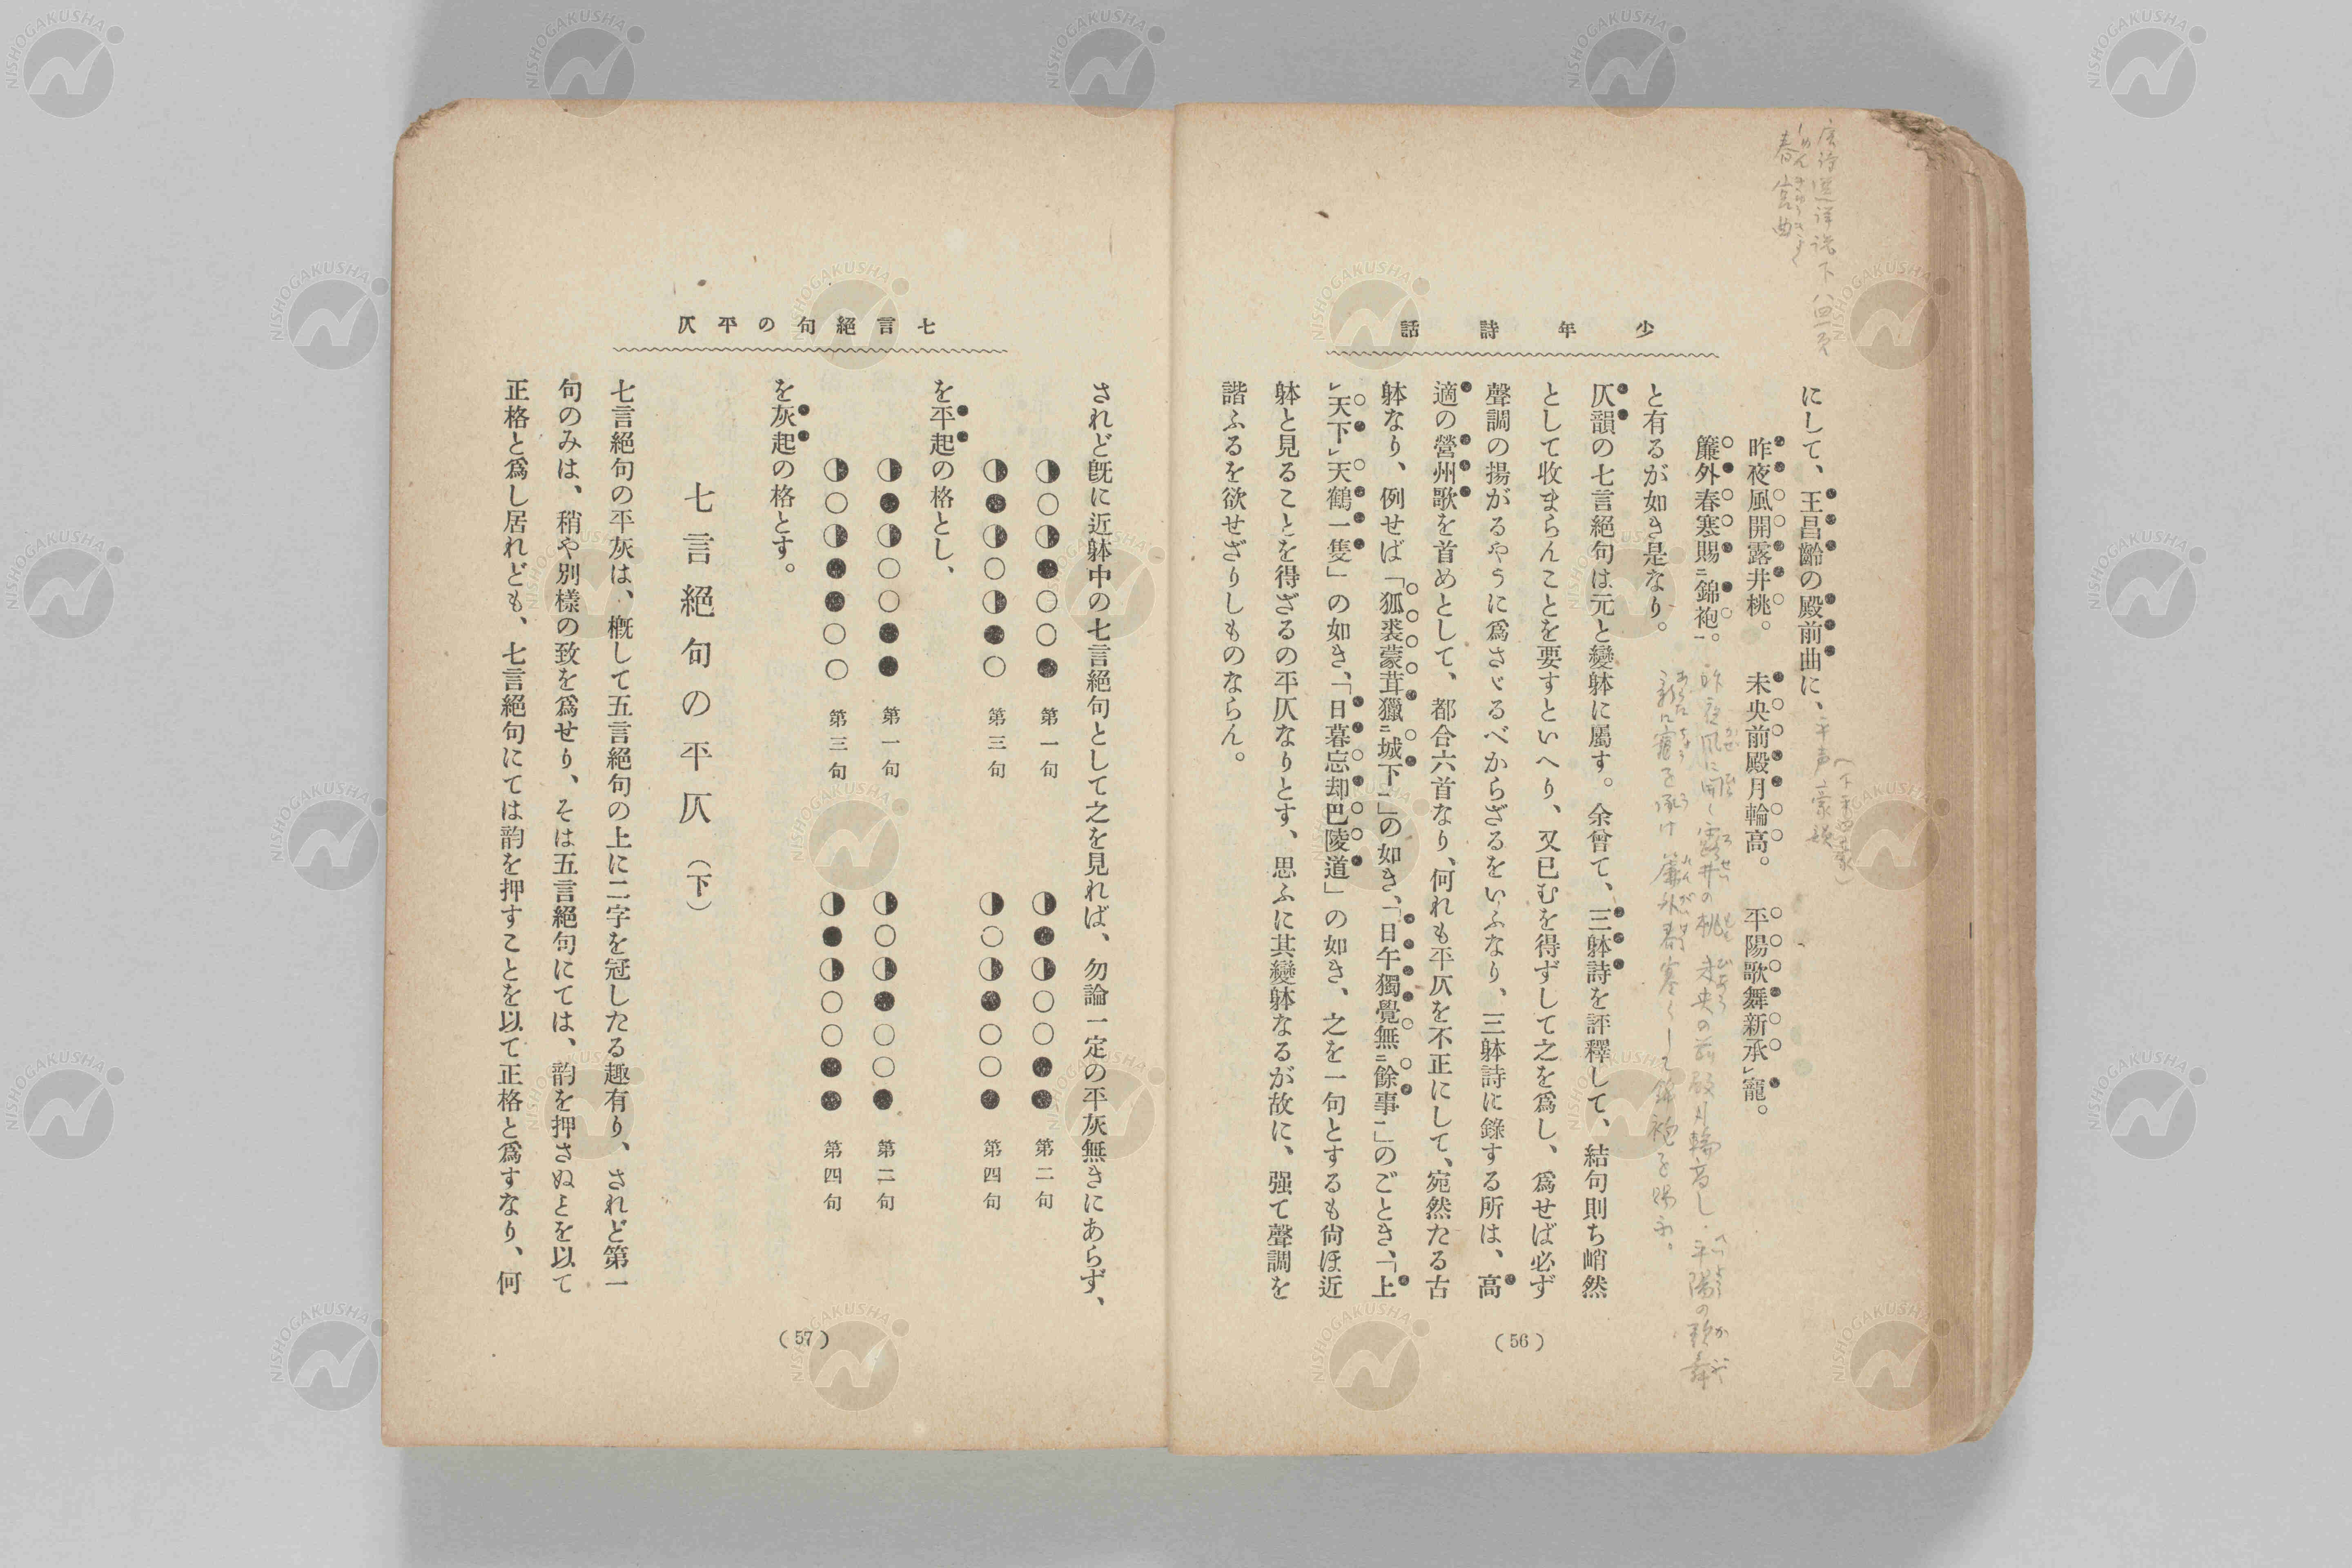 少年詩話
にして、王昌齡の殿前曲に、
昨夜風開露井桃。 未央前殿月輪高。 平陽歌舞新承レ寵。
簾外春寒賜ニ錦袍一。
と有るが如き是なり。
仄韻の七言絕句は元と變躰に屬す。余曾て、三躰詩を評釋して、結句則ち峭然
として收まらんことを要すといへり、又已むを得ずして之を爲し、爲せば必ず
聲調の揚がるやうに爲さゞるべからざるをいふなり、三躰詩に錄する所は、高
適の營州歌を首めとして、都合六首なり、何れも平仄を不正にして、宛然たる古
躰なり、例せば「狐裘蒙茸獵ニ城下一」の如き、「日午獨覺無ニ餘事一」のごとき、「上
レ天下レ天鶴一隻」の如き、「日暮忘却巴陵道」の如き、之を一句とするも尙ほ近
躰と見ることを得ざるの平仄なりとす、思ふに其變躰なるが故に、强て聲調を
諧ふるを欲せざりしものならん。
(56)
唐詩選詳說 下 八四一頁
春宮曲
平声豪韻
(下平四豪)
昨夜風に開く露井の桃 未央の前殿月輪高し 平陽の歌舞
新に寵を承け 簾外春寒くして錦袍を賜ふ。
七言絕句の平仄
されど旣に近躰中の七言絕句として之を見れば、勿論一定の平灰無きにあらず、
◑○◑●○○● 第一句 ◑●◑○○●● 第二句
◑●◑○◑●○ 第三句 ◑○◑●○○● 第四句
を平起の格とし、
◑●◑○○●● 第一句 ◑○◑●○○● 第二句
◑○◑●●○○ 第三句 ◑●◑○○●● 第四句
を灰起の格とす。
七言絕句の平仄(下)
七言絕句の平灰は、槪して五言絕句の上に二字を冠したる趣有り、されど第一
句のみは、稍や別樣の致を爲せり、そは五言絕句にては、韵を押さぬとを以て
正格と爲し居れども、七言絕句にては韵を押すことを以て正格と爲すなり、何
(57)
NISHOGAKUSHA